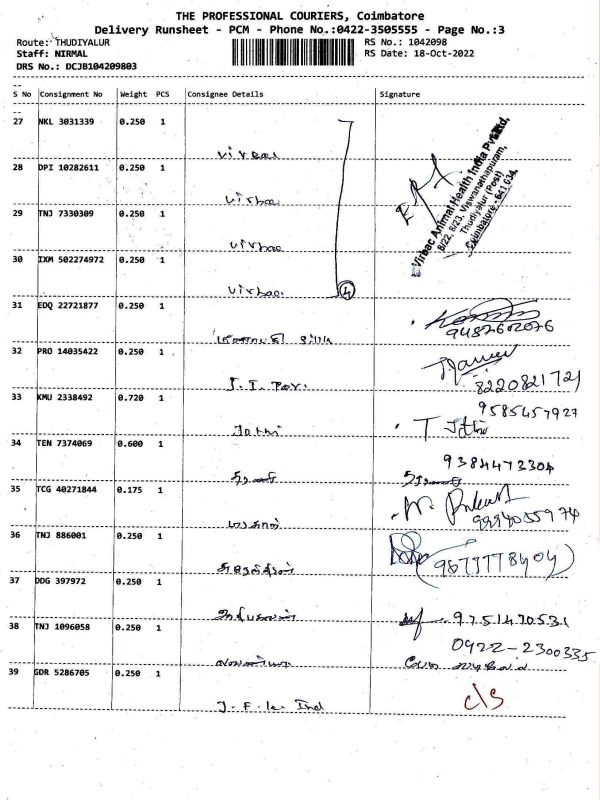 THE PROFESSIONAL COURIERS, Coimbatore
Delivery Runsheet - PCM - Phone No.:0422-3505555 - Page No.:3
Route: THUDIYALUR
RS No.: 1042098
Staff: NIRMAL
RS Date: 18-Oct-2022
DRS No.: DCJB104209803
S No Consignment No Weight PCS Consignee Details Signature
27 NKL 3031339 0.250 1
Virbac
28 DPI 10282611 0.250 1
Virbac
29 TNJ 7330309 0.250 1
Virbac
30 IXM 502274972 0.250 1
Virbac
4
Virbac Animal Health India Pvt Ltd,
8/22, 8/23, Viswanathapuram,
Thudiyalur (Post)
Coimbatore - 641 034.
31 EDQ 22721877 0.250 1
9487602076
32 PRO 14035422 0.250 1
8220821721
33 KMU 2338492 0.720 1
9585457927
Jothi
T Jothi
34 TEN 7374069 0.600 1
9384473304
35 TCG 40271844 0.175 1
36 TNJ 886001 0.250 1
37 DDG 397972 0.250 1
9751470531
38 TNJ 1096058 0.250 1
0422-2300335
39 GDR 5286705 0.250 1
c/s